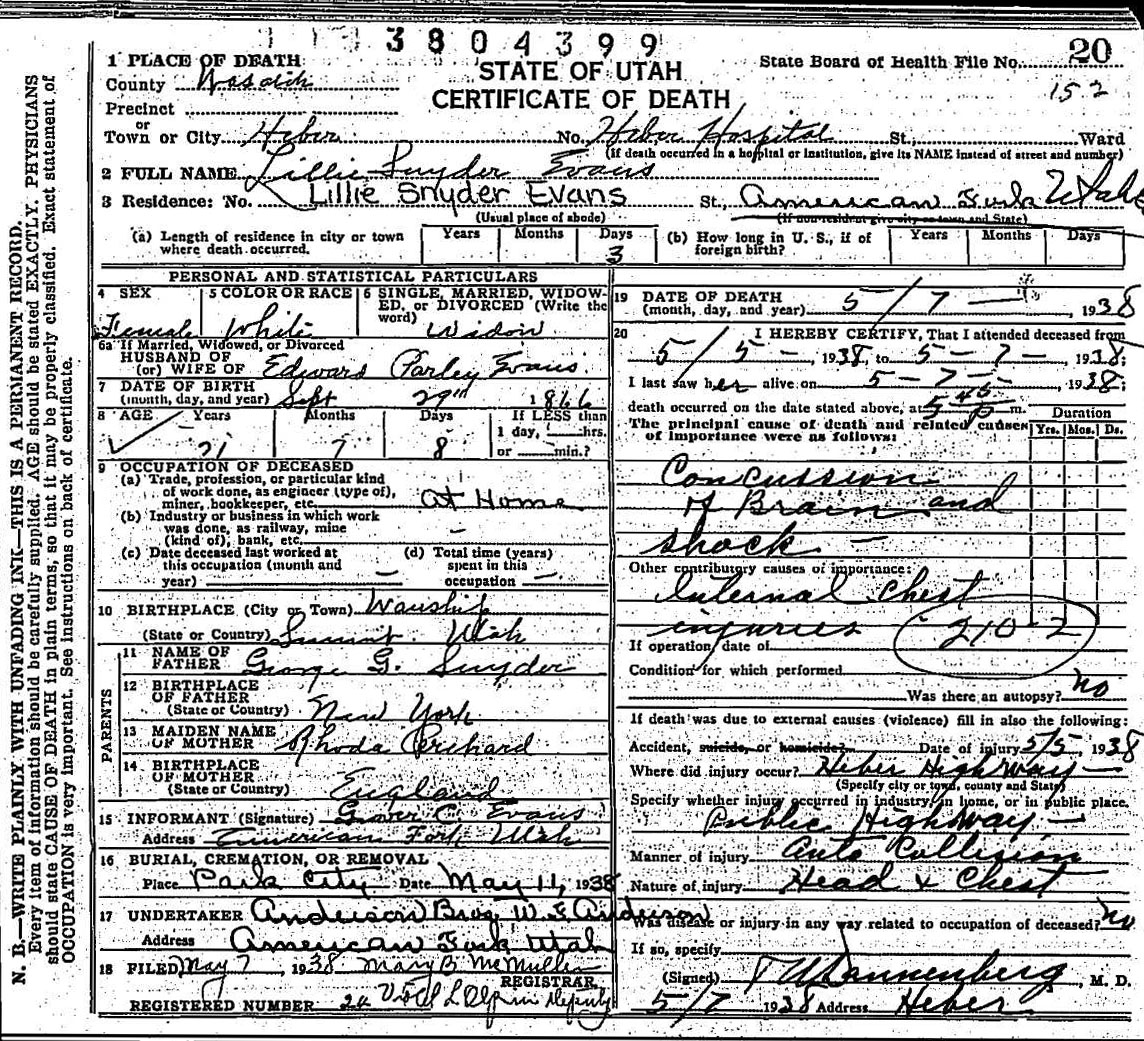 3804399
1 PLACE OF DEATH
STATE OF UTAH
State Board of Health File No. 20
County Wasatch
CERTIFICATE OF DEATH
152
Precinct
or
Town or City Heber No. Heber Hospital St., Ward
(If death occurred in a hospital or institution, give its NAME instead of street and number)
2 FULL NAME Lillie Snyder Evans
3 Residence: No. Lillie Snyder Evans St., American Fork Utah
(Usual place of abode) (If non-resident give city or town and State)
(a) Length of residence in city or town where death occurred. Years Months Days 3
(b) How long in U. S., if of foreign birth? Years Months Days
PERSONAL AND STATISTICAL PARTICULARS
4 SEX 5 COLOR OR RACE 6 SINGLE, MARRIED, WIDOWED, or DIVORCED (Write the word)
Female White Widow
6a If Married, Widowed, or Divorced
HUSBAND OF
(or) WIFE OF Edward Parley Evans
7 DATE OF BIRTH
(month, day, and year) Sept 29" 1866
8 AGE Years Months Days If LESS than
71 7 8 1 day, hrs.
or min.?
9 OCCUPATION OF DECEASED
(a) Trade, profession, or particular kind
of work done, as engineer (type of),
miner, bookkeeper, etc. At Home
(b) Industry or business in which work
was done, as railway, mine
(kind of), bank, etc. -
(c) Date deceased last worked at
this occupation (month and
year) -
(d) Total time (years)
spent in this
occupation -
10 BIRTHPLACE (City or Town) Wanship
(State or Country) Summit Utah
PARENTS
11 NAME OF
FATHER George G. Snyder
12 BIRTHPLACE
OF FATHER
(State or Country) New York
13 MAIDEN NAME
OF MOTHER Rhoda
14 BIRTHPLACE
OF MOTHER
(State or Country) England
15 INFORMANT (Signature) Grover C. Evans
Address American Fork Utah
16 BURIAL, CREMATION, OR REMOVAL
Place Park City Date May 11, 1938
17 UNDERTAKER Anderson Bros W. E. Anderson
Address American Fork Utah
18 FILED May 7, 1938 Mary B McMullin
REGISTRAR
REGISTERED NUMBER 20 Deputy
19 DATE OF DEATH
(month, day, and year) 5/7 - , 1938
20 I HEREBY CERTIFY, That I attended deceased from
5/5 - , 1938, to 5-7- , 1938;
I last saw her alive on 5-7- , 1938;
death occurred on the date stated above, at 5 45 P m.
The principal cause of death and related causes
of importance were as follows:
Duration
Yrs. Mos. Ds.
Concussion
of Brain and
shock -
Other contributory causes of importance:
Internal Chest
injuries
210-2
If operation, date of
Condition for which performed
Was there an autopsy? no
If death was due to external causes (violence) fill in also the following:
Accident, suicide, or homicide? Date of injury 5/5, 1938
Where did injury occur? Heber Highway -
(Specify city or town, county and State)
Specify whether injury occurred in industry, in home, or in public place.
Public Highway -
Manner of injury Auto Collision
Nature of injury Head & Chest
Was disease or injury in any way related to occupation of deceased? no
If so, specify
(Signed) Dannenberg, M. D.
5/7 1938 Address Heber
N. B.—WRITE PLAINLY WITH UNFADING INK—THIS IS A PERMANENT RECORD.
Every item of information should be carefully supplied. AGE should be stated EXACTLY. PHYSICIANS
should state CAUSE OF DEATH in plain terms, so that it may be properly classified. Exact statement of
OCCUPATION is very important. See instructions on back of certificate.